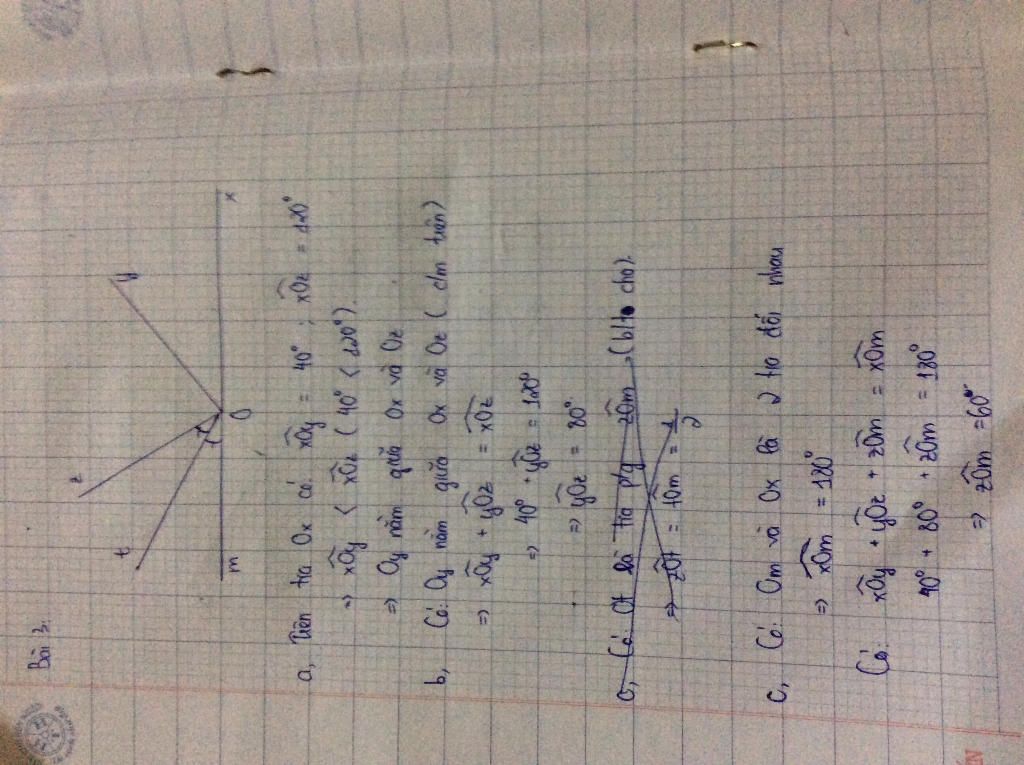 Bài 3:
z
y
t
m
O
x
a, Trên tia Ox có: xÔy = 40° ; xÔz = 120°
=> xÔy < xÔz ( 40° < 120°).
=> Oy nằm giữa Ox và Oz
b, Có: Oy nằm giữa Ox và Oz ( c/m trên)
=> xÔy + yÔz = xÔz
=> 40° + yÔz = 120°
=> yÔz = 80°
c, Có: Ot là tia p/g zÔm (b/t cho).
=> zÔt = tÔm = 1/2
c, Có: Om và Ox là 2 tia đối nhau
=> xÔm = 180°
Có: xÔy + yÔz + zÔm = xÔm
40° + 80° + zÔm = 180°
=> zÔm = 60°